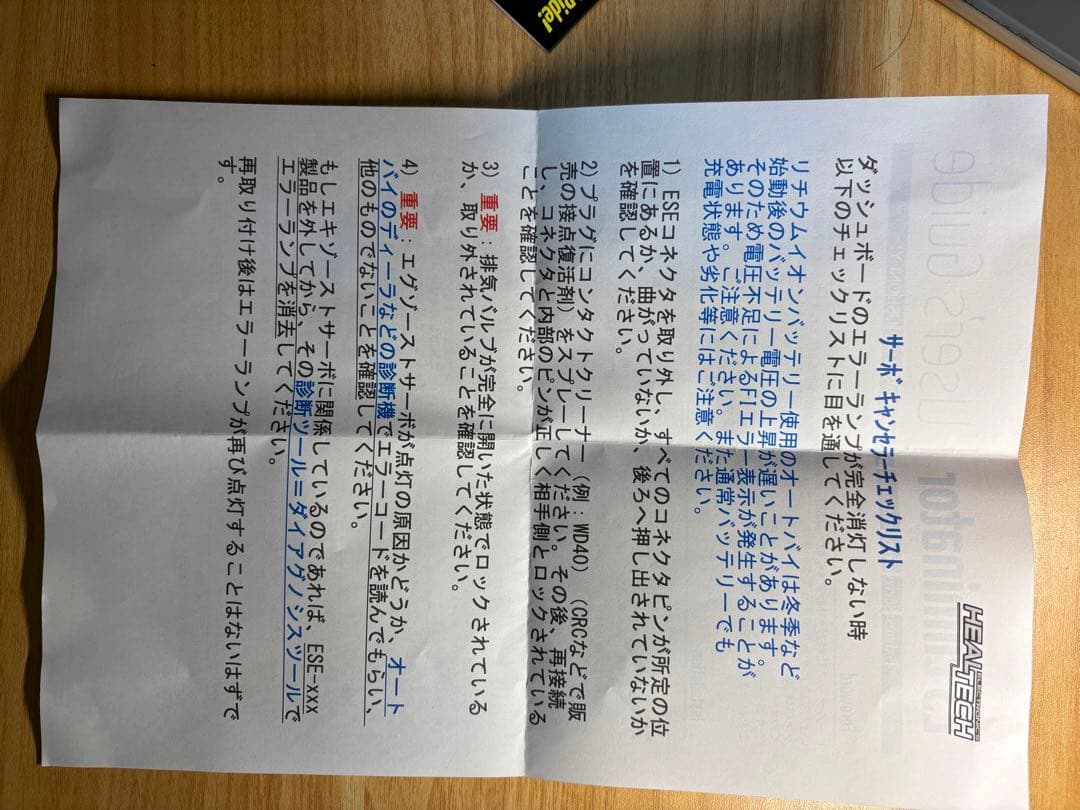 Ride!
HEALTECH
ELECTRONICS
サーボ キャンセラーチェックリスト
ダッシュボードのエラーランプが完全消灯しない時
以下のチェックリストに目を通してください。
リチウムイオンバッテリー使用のオートバイは冬季など
始動後のバッテリー電圧の上昇が遅いことがあります。
そのため電圧不足によるFIエラー表示が発生することが
あります。ご注意ください。また通常バッテリーでも
充電状態や劣化等にはご注意ください。
1) ESEコネクタを取り外し、すべてのコネクタピンが所定の位
置にあるか、曲がっていないか、後ろへ押し出されていないか
を確認してください。
2) プラグにコンタクトクリーナー（例：WD40）（CRCなどで販
売の接点復活剤）をスプレーしてください。その後、再接続
し、コネクタと内部のピンが正しく相手側とロックされている
ことを確認してください。
3) 重要：排気バルブが完全に開いた状態でロックされている
か、取り外されていることを確認してください。
4) 重要：エグゾーストサーボが点灯の原因かどうか、オート
バイのディーラなどの診断機でエラーコードを読んでもらい、
他のものでないことを確認してください。
もしエキゾーストサーボに関係しているのであれば、ESE-xxx
製品を外してから、その診断ツール＝ダイアグノシスツールで
エラーランプを消去してください。
再取り付け後はエラーランプが再び点灯することはないはずで
す。
User's Guide